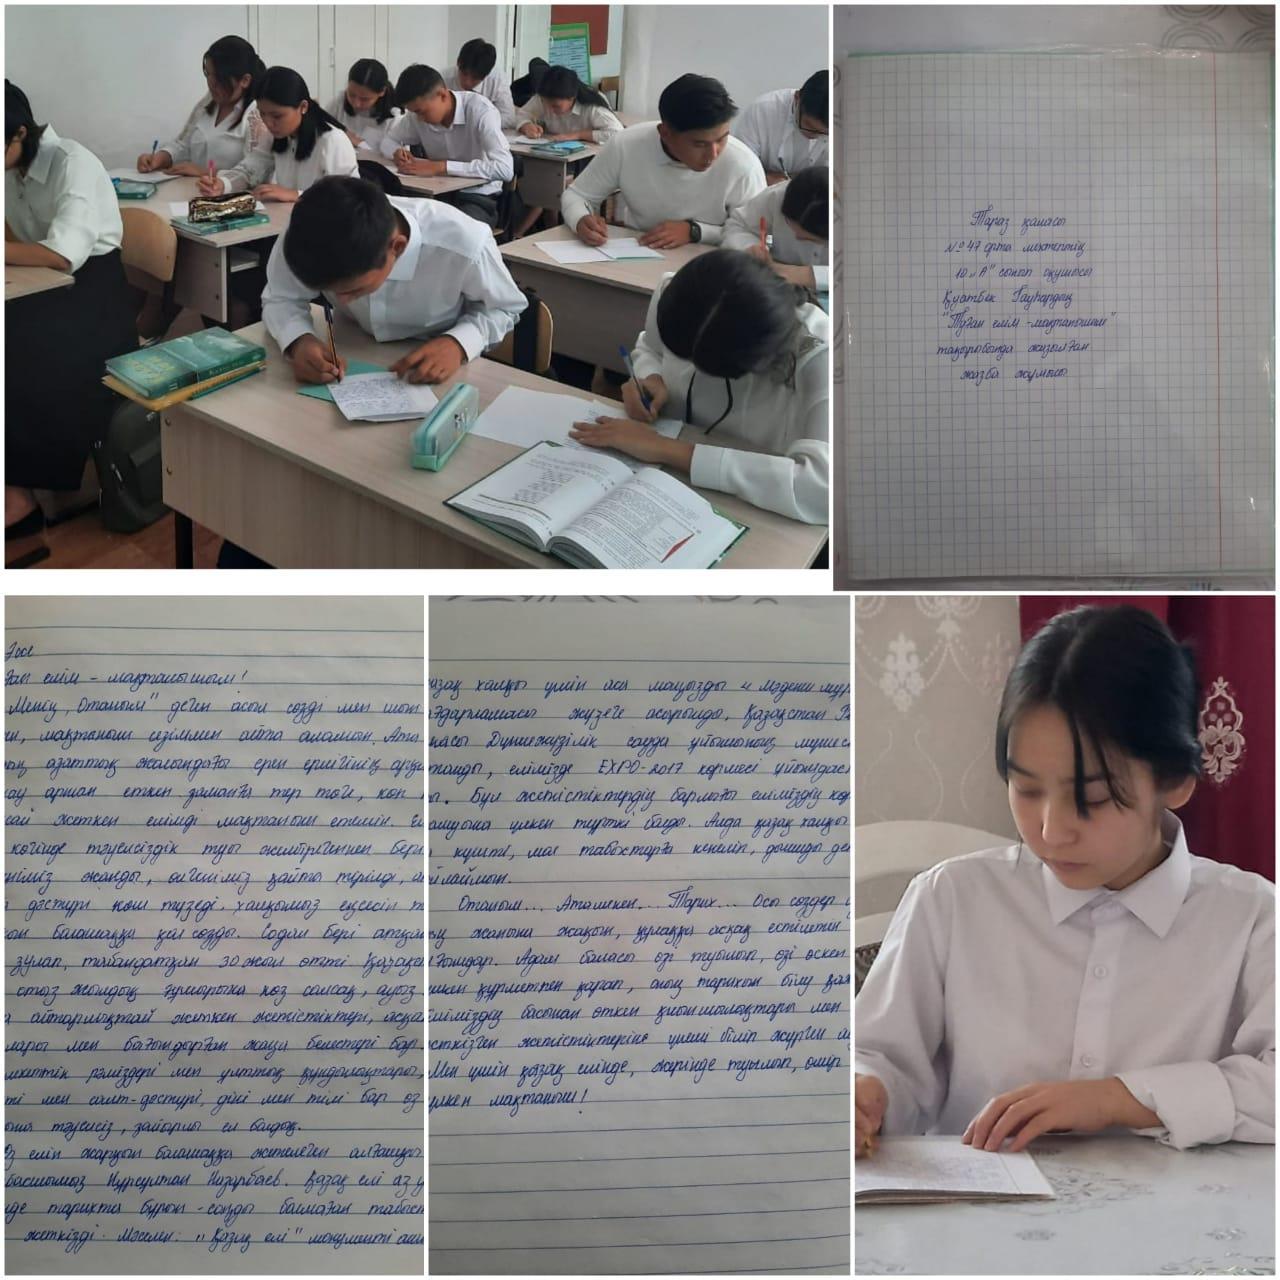 Тараз қаласы
№ 47 орта мектептің
10 „А" сынып оқушысы
Қуатбек Гауһардың
"Туған елім - мақтанышым"
тақырыбында жазылған
жазба жұмысы
Эссе
елім - мақтанышым!
Менің „Отаным" деген асыл сөзді мен шын
мақтаныш сезіммен айта аламын. Ата
азаттық жолындағы ерен ерлігінің арқ
арман еткен заманға тер төге, көп
жеткен елімді мақтаныш етемін. Ел
көгінде тәуелсіздік туы желбірегеннен бері
жанды, өлгеніміз қайта тірілді,
дәстүрі көш түзеді, халқымыз еңсесін т
болашаққа қол созды. Содан бері
зулап, табандатқан 30 жыл өтті. Қазақс
отыз жылдық ғұмырына көз салсақ, ауыз
айтарлықтай жеткен жетістіктері, асқа
мен бағындырған жаңа белестері бар.
рәміздері мен ұлттық құндылықтары,
мен салт-дәстүрі, діні мен тілі бар өз
тәуелсіз, зайырлы ел болдық.
елін жарқын болашаққа жетелеген алғашқы
басшымыз Нұрсұлтан Назарбаев. Қазақ елі аз у
тарихта бұрын - соңды болмаған табыст
жеткізді. Мәселен: „Қазақ елі" монументі аш
қазақ халқы үшін аса маңызды „Мәдени мұр
ағдарламасы жүзеге асырылды, Қазақстан Р
Дүниежүзілік сауда ұйымының мүшесі
елімізде EXPO-2017 көрмесі ұйымдас
Бұл жетістіктердің барлығы еліміздің көр
үлкен түрткі болды. Алда қазақ халқы
күшті, мол табыстарға кенеліп, дамиды де
йлаймын.
Отаным... Атамекен... Тарих... Осы сөздер
жанына жақын, құлаққа асқақ естілетін
ғымдар. Адам баласы өзі туылып, өзі өскен
құрметпен қарап, оның тарихын білу қаж
Еліміздің басынан өткен қиыншылықтары мен
жетістіктеріне үнемі біліп жүрген
Мен үшін қазақ елінде, жерінде туылып, өмір
үлкен мақтаныш!